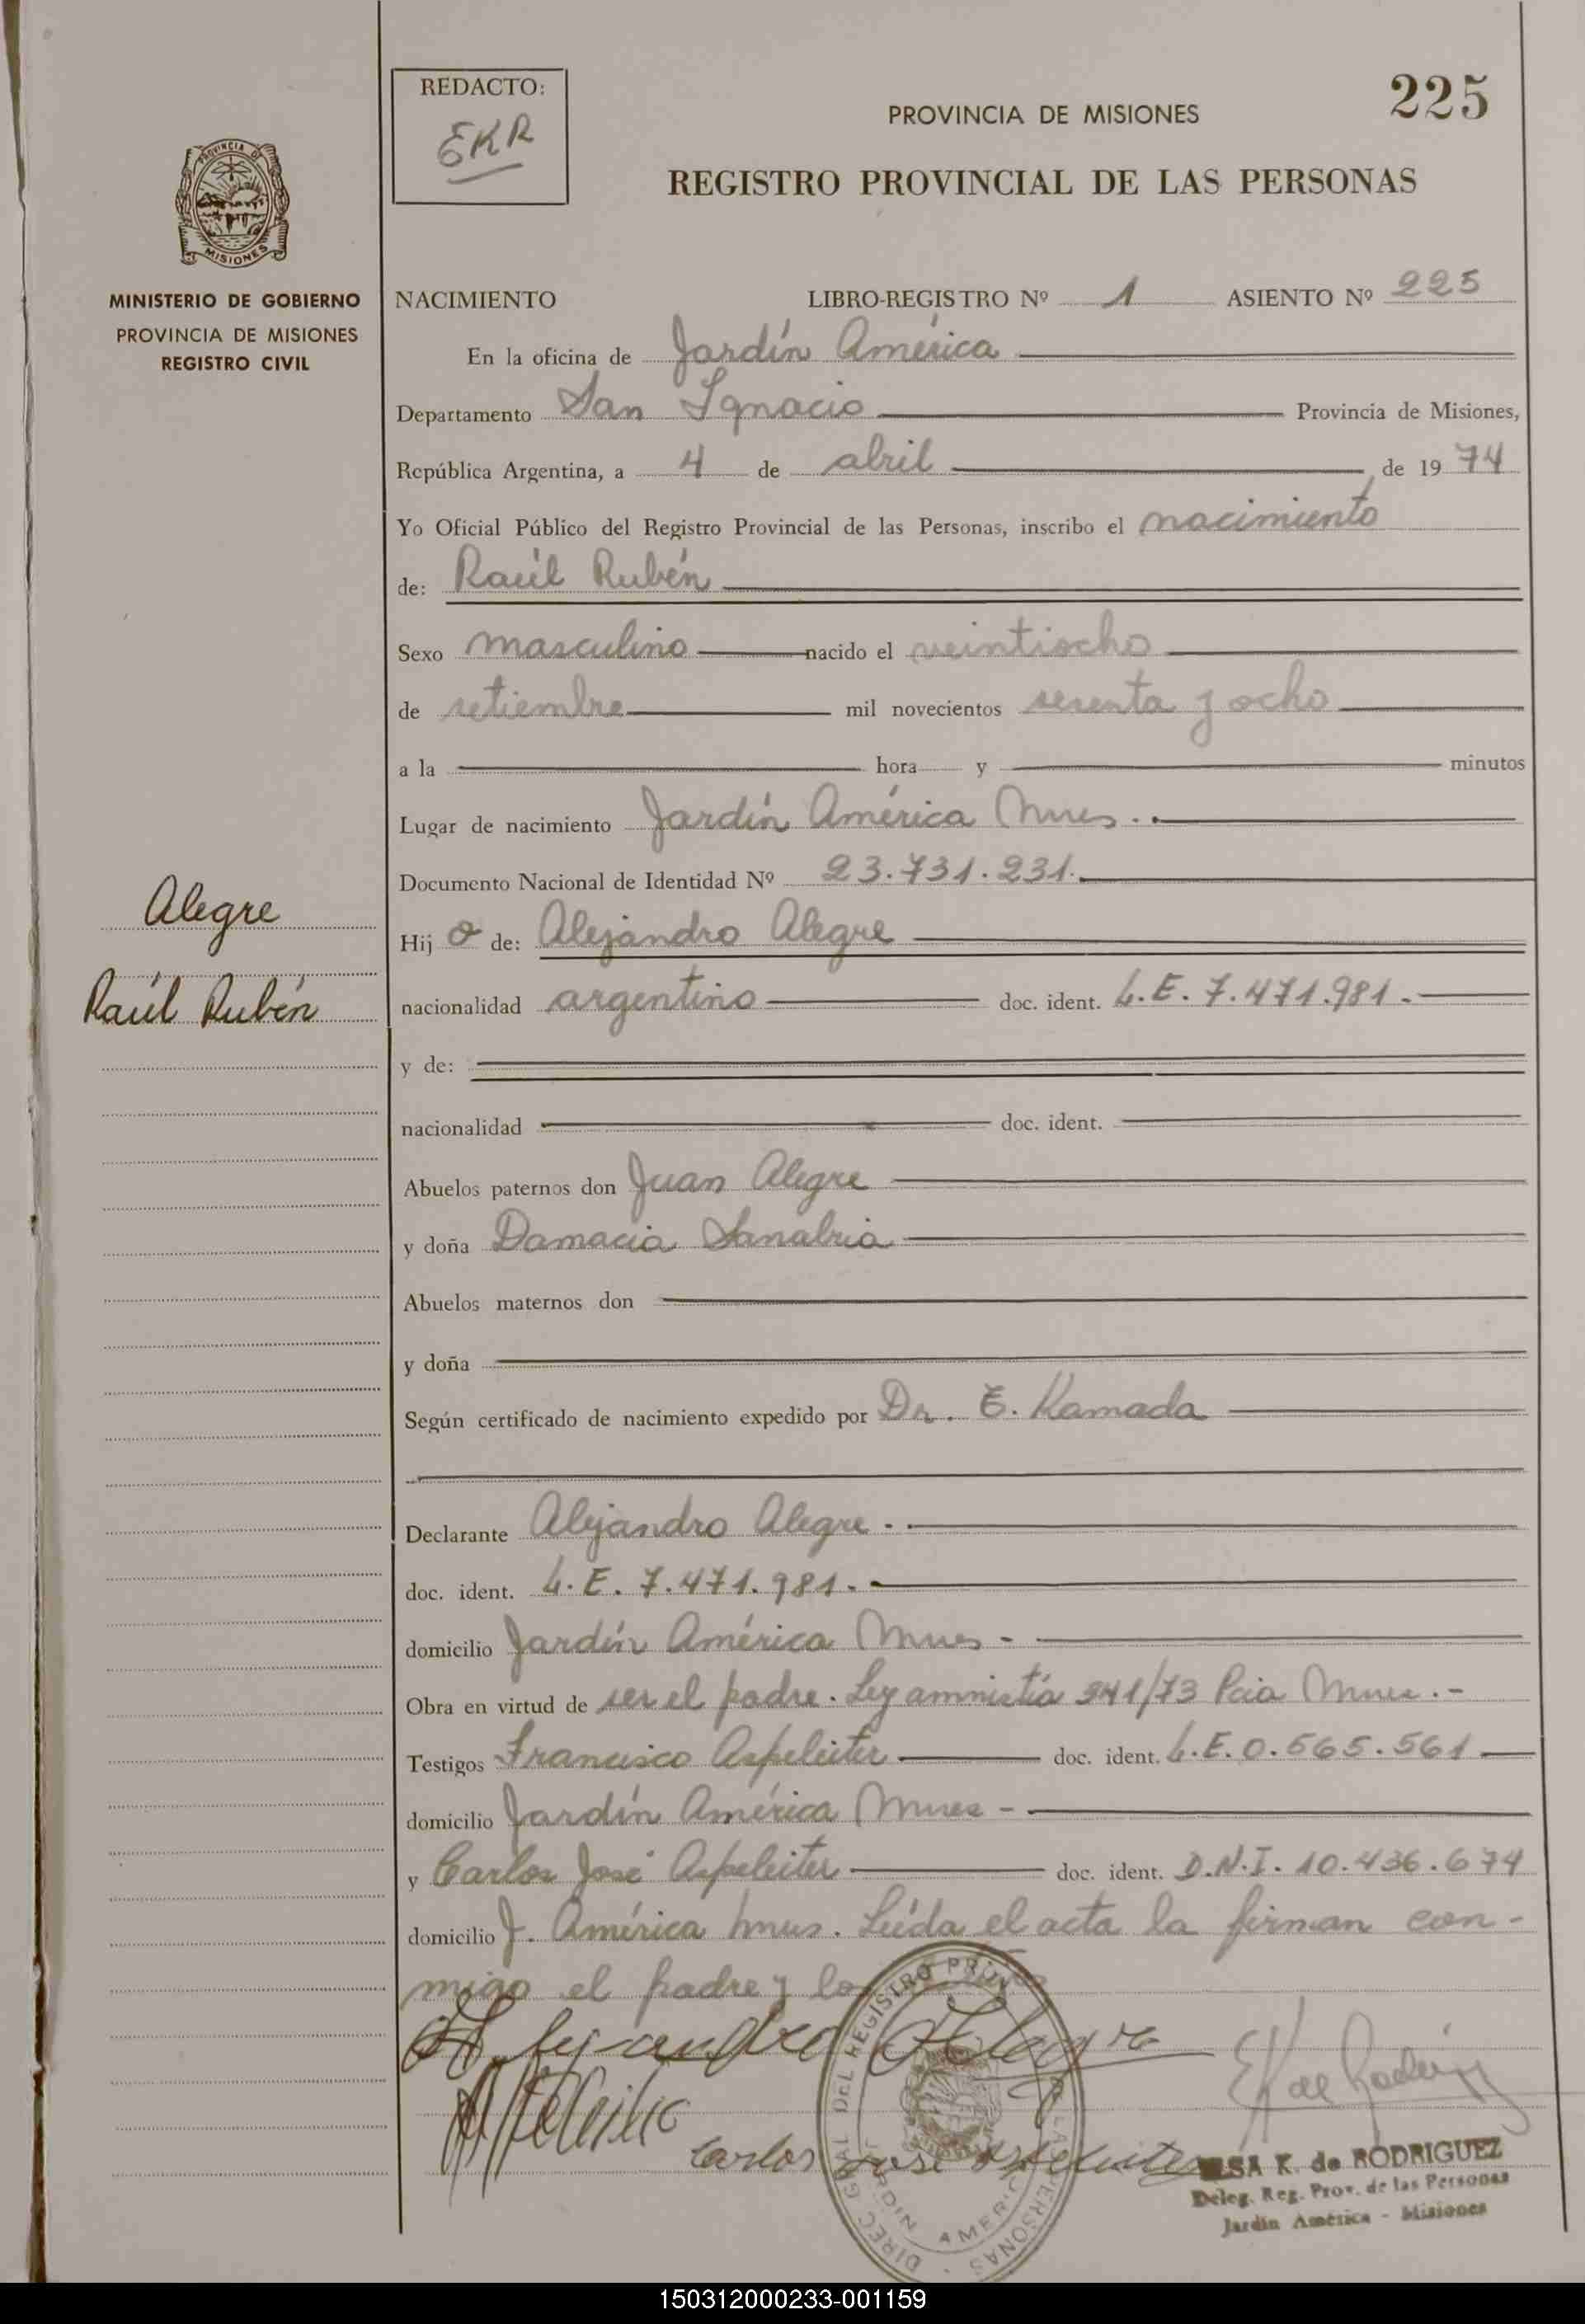 REDACTO:
EKR
PROVINCIA DE MISIONES
225
REGISTRO PROVINCIAL DE LAS PERSONAS
PROVINCIA DE
MISIONES
MINISTERIO DE GOBIERNO
PROVINCIA DE MISIONES
REGISTRO CIVIL
NACIMIENTO LIBRO-REGISTRO Nº 1 ASIENTO Nº 225
En la oficina de Jardín América
Departamento San Ignacio Provincia de Misiones,
República Argentina, a 4 de abril de 19 74
Yo Oficial Público del Registro Provincial de las Personas, inscribo el nacimiento
de: Raúl Rubén
Sexo masculino nacido el veintiocho
de setiembre mil novecientos sesenta y ocho
a la hora y minutos
Lugar de nacimiento Jardín América Mnes.
Documento Nacional de Identidad Nº 23.731.231.
Alegre
Raúl Rubén
Hij o de: Alejandro Alegre
nacionalidad argentino doc. ident. L.E. 7.471.981.
y de:
nacionalidad doc. ident.
Abuelos paternos don Juan Alegre
y doña Damacia Sanabria
Abuelos maternos don
y doña
Según certificado de nacimiento expedido por Dr. E. Kamada
Declarante Alejandro Alegre.
doc. ident. L.E. 7.471.981.
domicilio Jardín América Mnes -
Obra en virtud de ser el padre. Ley amnistía 941/73 Pcia Mnes.-
Testigos Francisco Aspeleiter doc. ident. L.E. 0.565.561
domicilio Jardín América Mnes -
y Carlos José Aspeleiter doc. ident. D.N.I. 10.436.674
domicilio J. América Mnes. Leída el acta la firman con-
migo el padre y los
Alejandro Alegre
Carlos José Aspeleiter
DIREC. GRAL DEL REGISTRO PROV. DE LAS PERSONAS
JARDIN AMERICA
ELSA K. de RODRIGUEZ
Deleg. Reg. Prov. de las Personas
Jardín América - Misiones
150312000233-001159